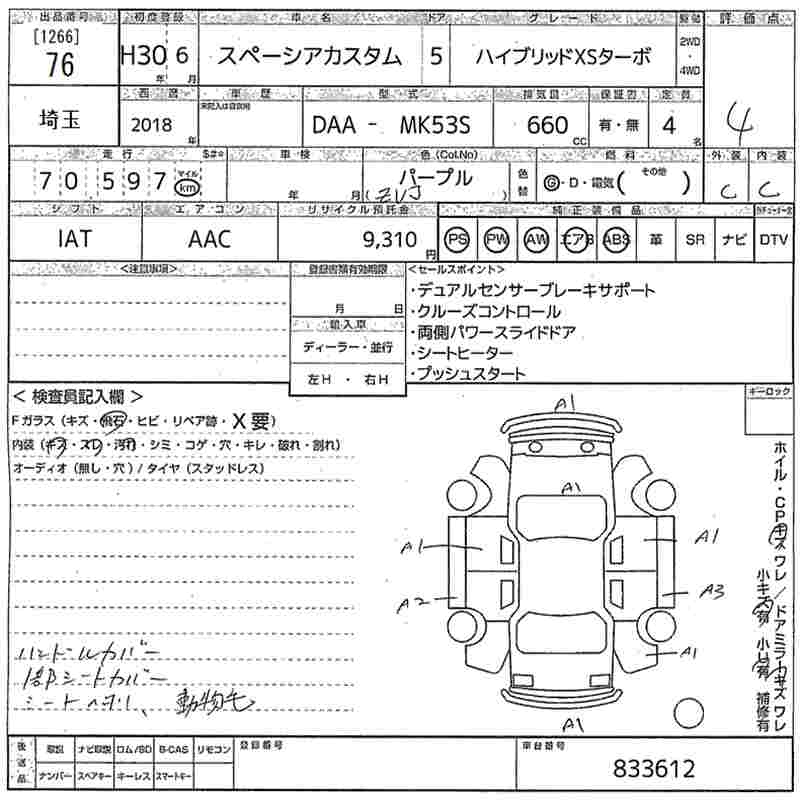 出品番号 初度登録 車名 ドア グレード 駆動 評価点
[1266]
76 H30年 6月 スペーシアカスタム 5 ハイブリッドXSターボ 2WD・4WD
西暦 車歴 型式 排気量 保証書 定員
未記入は自家用
埼玉 2018年 DAA - MK53S 660cc 有・無 4名 4
走行 車検 色(Col.No) 燃料 外装 内装
70,597 マイル km 年 月 パープル 色替 G・D・電気( その他 ) C C
シフト エアコン リサイクル預託金 純正装備品
IAT AAC 9,310円 PS PW AW エアB ABS 革 SR ナビ DTV
<注意事項> 登録書類有効期限 <セールスポイント>
月 日
・デュアルセンサーブレーキサポート
・クルーズコントロール
輸入車
・両側パワースライドドア
ディーラー・並行
・シートヒーター
左H ・ 右H
・プッシュスタート
< 検査員記入欄 >
キーロック
Fガラス (キズ・飛石・ヒビ・リペア跡・X要)
内装 (キズ・スレ・汚れ・シミ・コゲ・穴・キレ・破れ・割れ)
オーディオ (無し・穴) / タイヤ (スタッドレス)
A1
A1
A1 A1
A2 A3
A1
A1
ホイル・CPキズワレ/ドアミラーキズワレ
小キズ有 小凹有 補修有
ハンドルカバー
シートカバー
動物毛
後送品 取説 ナビ取説 ロム/SD B-CAS リモコン 登録番号 車台番号
ナンバー スペアキー キーレス スマートキー
833612